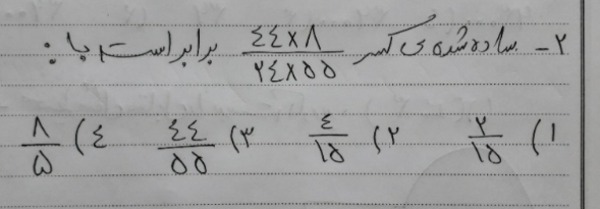 ۲- ساده شده‌ی کسر ۴۴×۸ / ۲۴×۵۵ برابر است با :
۱) ۲/۱۵ ۲) ۴/۱۵ ۳) ۴۴/۵۵ ۴) ۸/۵